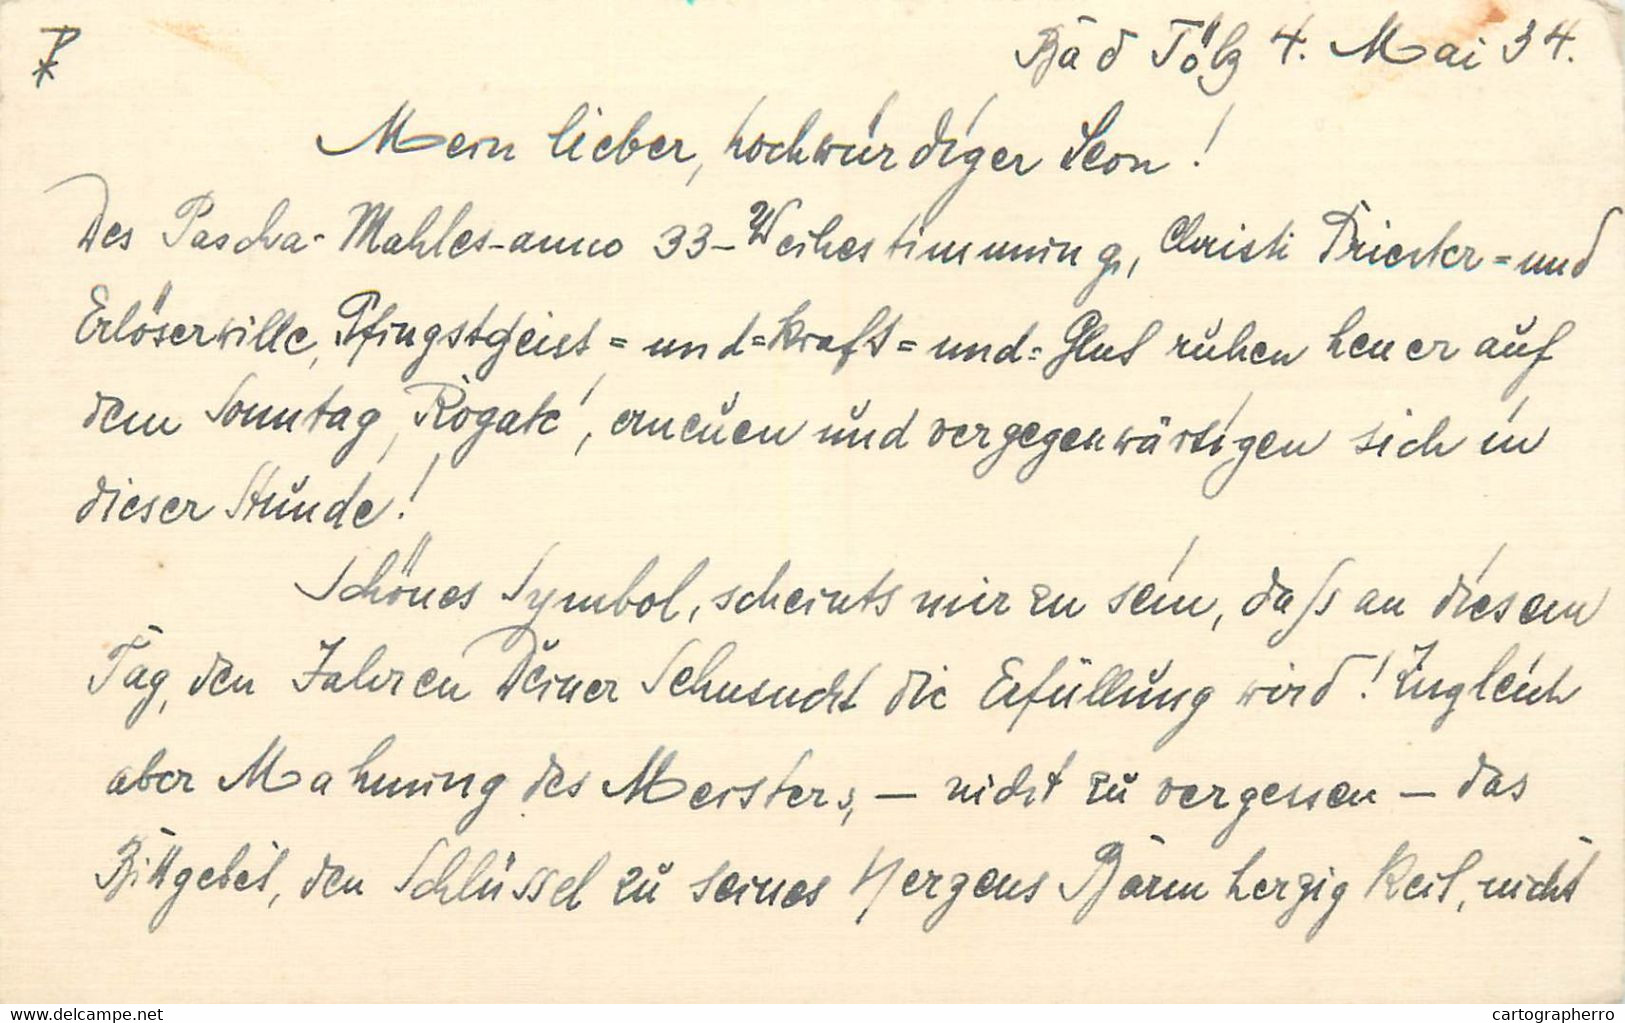 ☧
Bad Tölz 4. Mai 34.
Mein lieber, hochwürdiger Leon!
Des Pascha-Mahles-anno 33-Weihestimmung, Christi Priester=und
Erlöserwille, Pfingstgeist=und=kraft=und=Glut ruhen heuer auf
dem Sonntag „Rogate', erneuen und vergegenwärtigen sich in
dieser Stunde!
Schönes Symbol, scheints mir zu sein, daß an diesem
Tag, den Jahren Deiner Sehnsucht die Erfüllung wird! Zugleich
aber Mahnung des Meisters, — nicht zu vergessen — das
Bittgebet, den Schlüssel zu seines Herzens Barmherzigkeit, nicht
hip.net
cartographerro